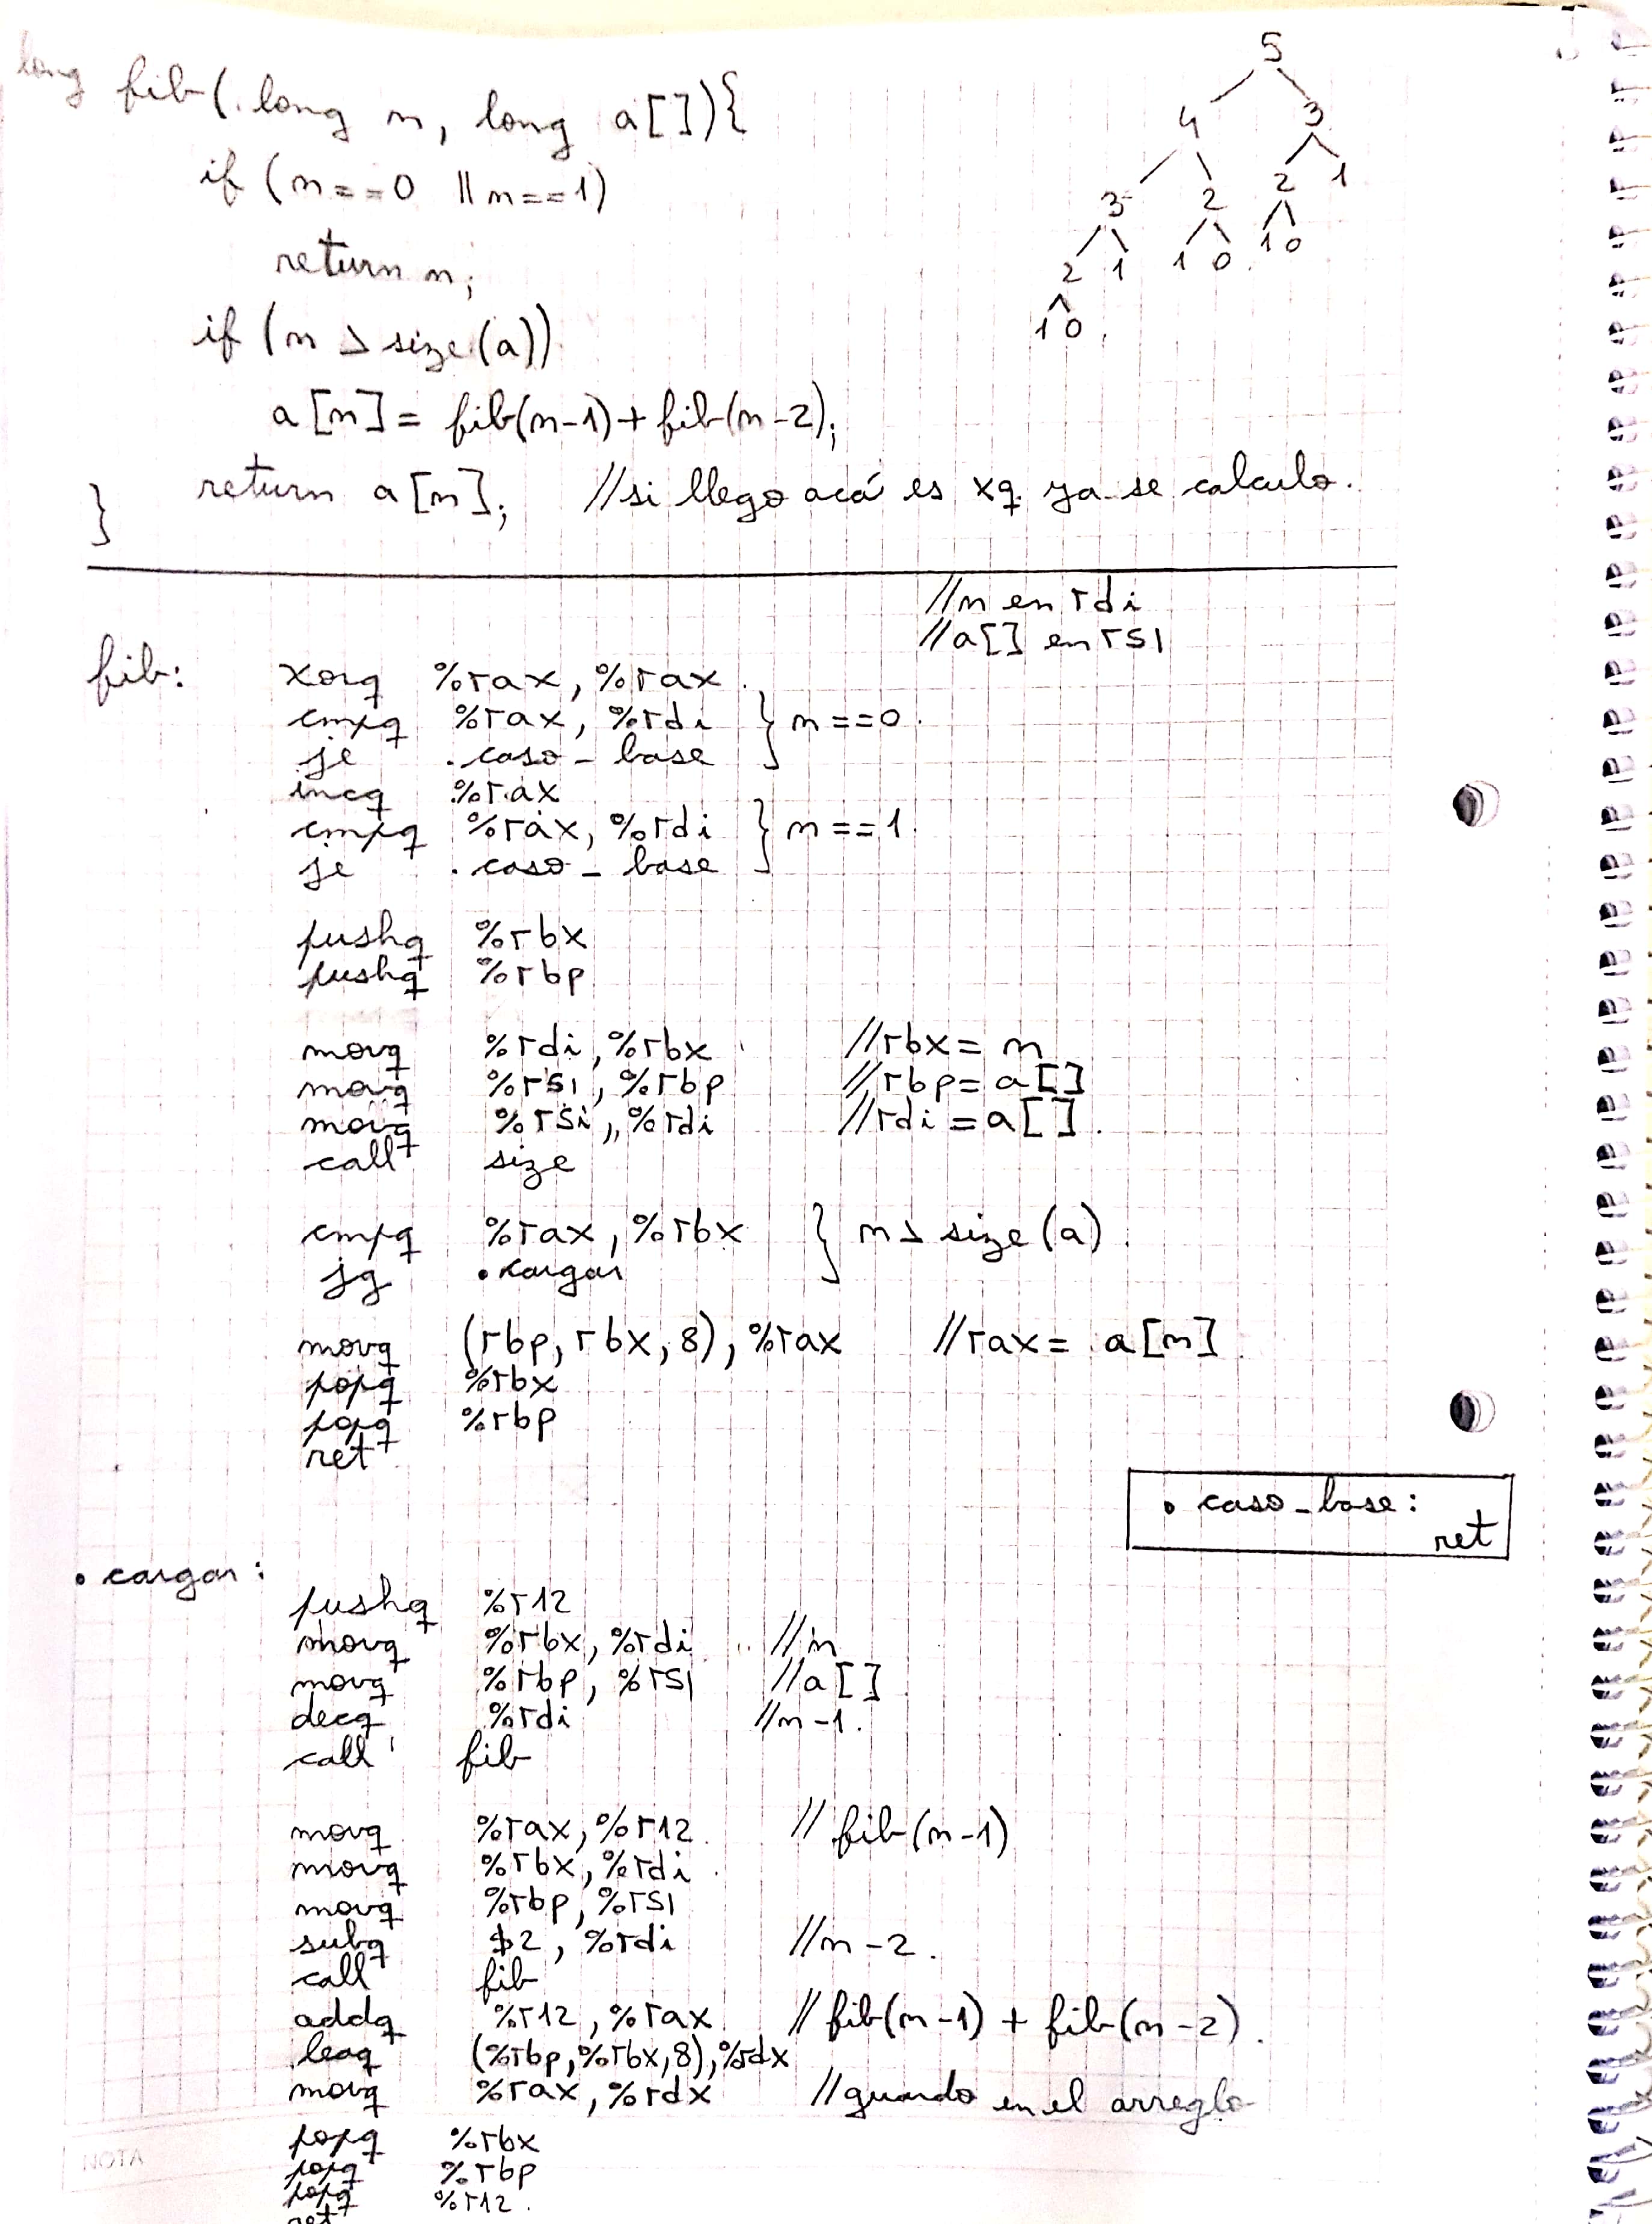 long fib(long n, long a[]){
if (n==0 || n==1)
return n;
if (n > size(a))
a[n] = fib(n-1) + fib(n-2);
return a[n]; //si llego acá es xq ya se calculo.
}
5
4 3
3 2 2 1
2 1 1 0 1 0
1 0
//n en rdi
//a[] en rsi
fib: xorq %rax, %rax
cmpq %rax, %rdi } n==0
je .caso_base
incq %rax
cmpq %rax, %rdi } n==1
je .caso_base
pushq %rbx
pushq %rbp
movq %rdi, %rbx //rbx = n
movq %rsi, %rbp //rbp = a[]
movq %rsi, %rdi //rdi = a[]
call size
cmpq %rax, %rbx } n > size(a)
jg .cargar
movq (rbp, rbx, 8), %rax //rax = a[n]
popq %rbx
popq %rbp
ret
.caso_base:
ret
.cargar:
pushq %r12
movq %rbx, %rdi //n
movq %rbp, %rsi //a[]
decq %rdi //n-1.
call fib
movq %rax, %r12 //fib(n-1)
movq %rbx, %rdi
movq %rbp, %rsi
subq $2, %rdi //n-2.
call fib
addq %r12, %rax //fib(n-1) + fib(n-2).
leaq (%rbp, %rbx, 8), %rdx
movq %rax, %rdx //guardo en el arreglo
popq %rbx
popq %rbp
popq %r12.
ret
NOTA